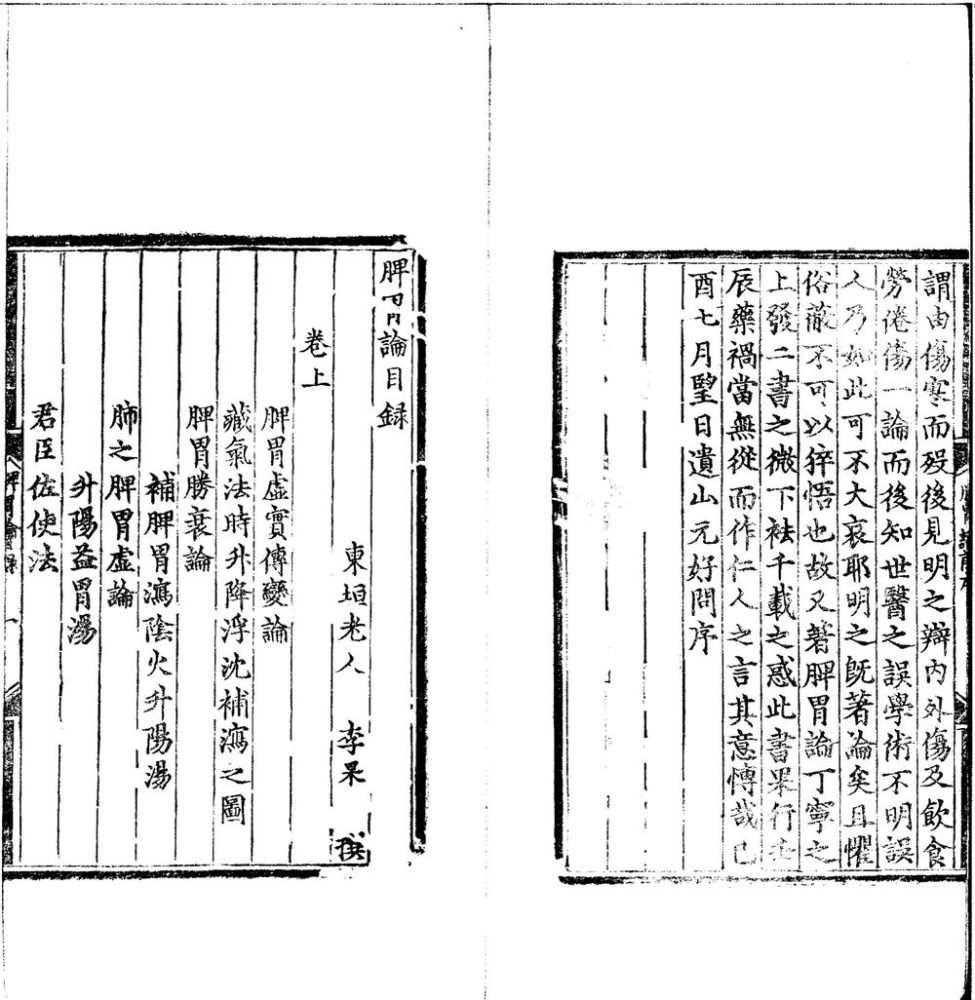 謂由傷寒而歿後見明之辯内外傷及飲食
勞倦傷一論而後知世醫之誤學術不明誤
人乃如此可不大哀耶明之旣著論矣且懼
俗蔽不可以猝悟也故又著脾胃論丁寧之
上發二書之微下袪千載之惑此書果行
辰藥禍當無從而作仁人之言其意慱哉己
酉七月朢日遺山元好問序
脾胃論目録
東垣老人 李杲 撰
卷上
脾胃虛實傳變論
藏氣法時升降浮沈補瀉之圖
脾胃勝衰論
補脾胃瀉陰火升陽湯
肺之脾胃虛論
升陽益胃湯
君臣佐使法
脾胃論目録 一